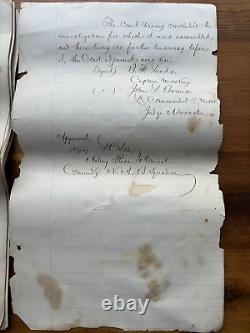 The Court having concluded the
investigation for which it was assembled,
and there being no further business before
it, the Court adjourned sine die.
(Signed) B. F. Sands,
Captain
John S. Barnes,
Lt. Commander
Judge Advocate
Approved,
(Signed) S. P. Lee,
Acting Rear Admiral
Commdg N. A. B. Squadron